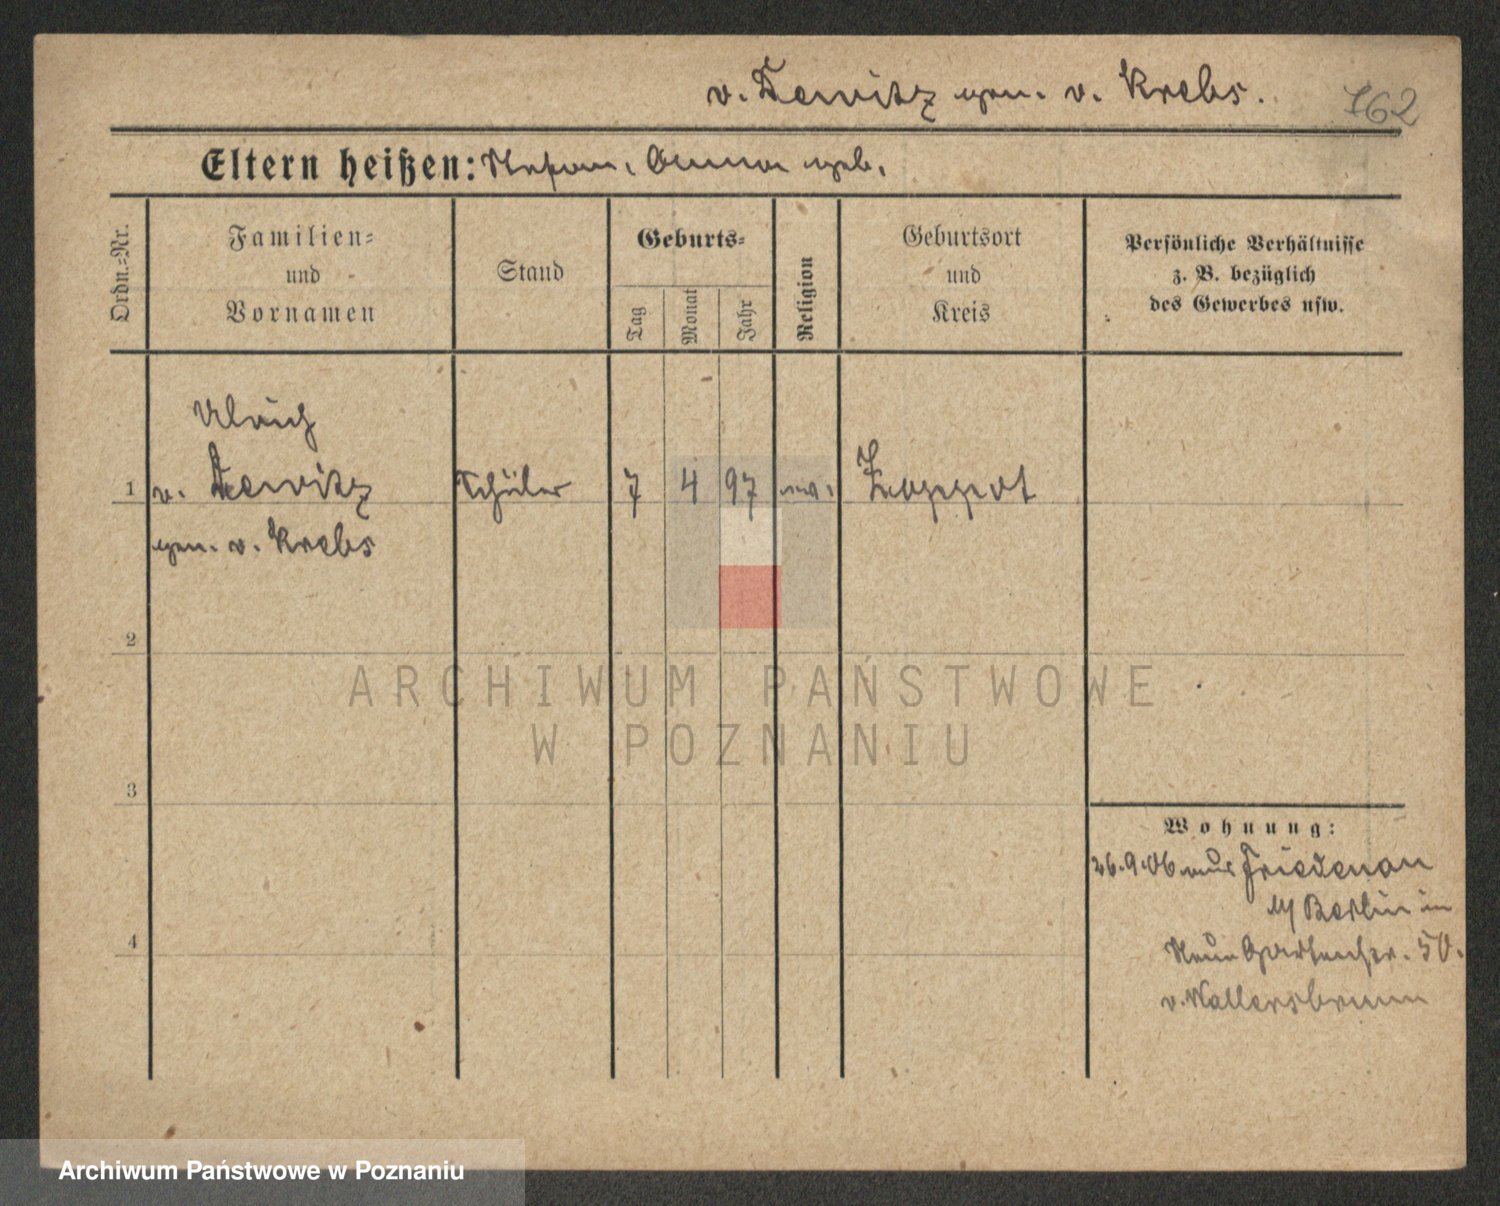 v. Dewitz gen. v. Krebs.
762
Eltern heißen: Stefan, Anna geb.
Ordn.=Nr.
Familien=
und
Vornamen
Stand
Geburts=
Tag
Monat
Jahr
Religion
Geburtsort
und
Kreis
Persönliche Verhältnisse
z. B. bezüglich
des Gewerbes usw.
Ulrich
1 v. Dewitz Schüler 7 4 97 ev. Zoppot
gen. v. Krebs
2
3
4
Wohnung:
26.9.06 aus Friedenau
b/ Berlin in
Neue Gartenstr. 50.
v. Wallersbrunn
ARCHIWUM PAŃSTWOWE
W POZNANIU
Archiwum Państwowe w Poznaniu